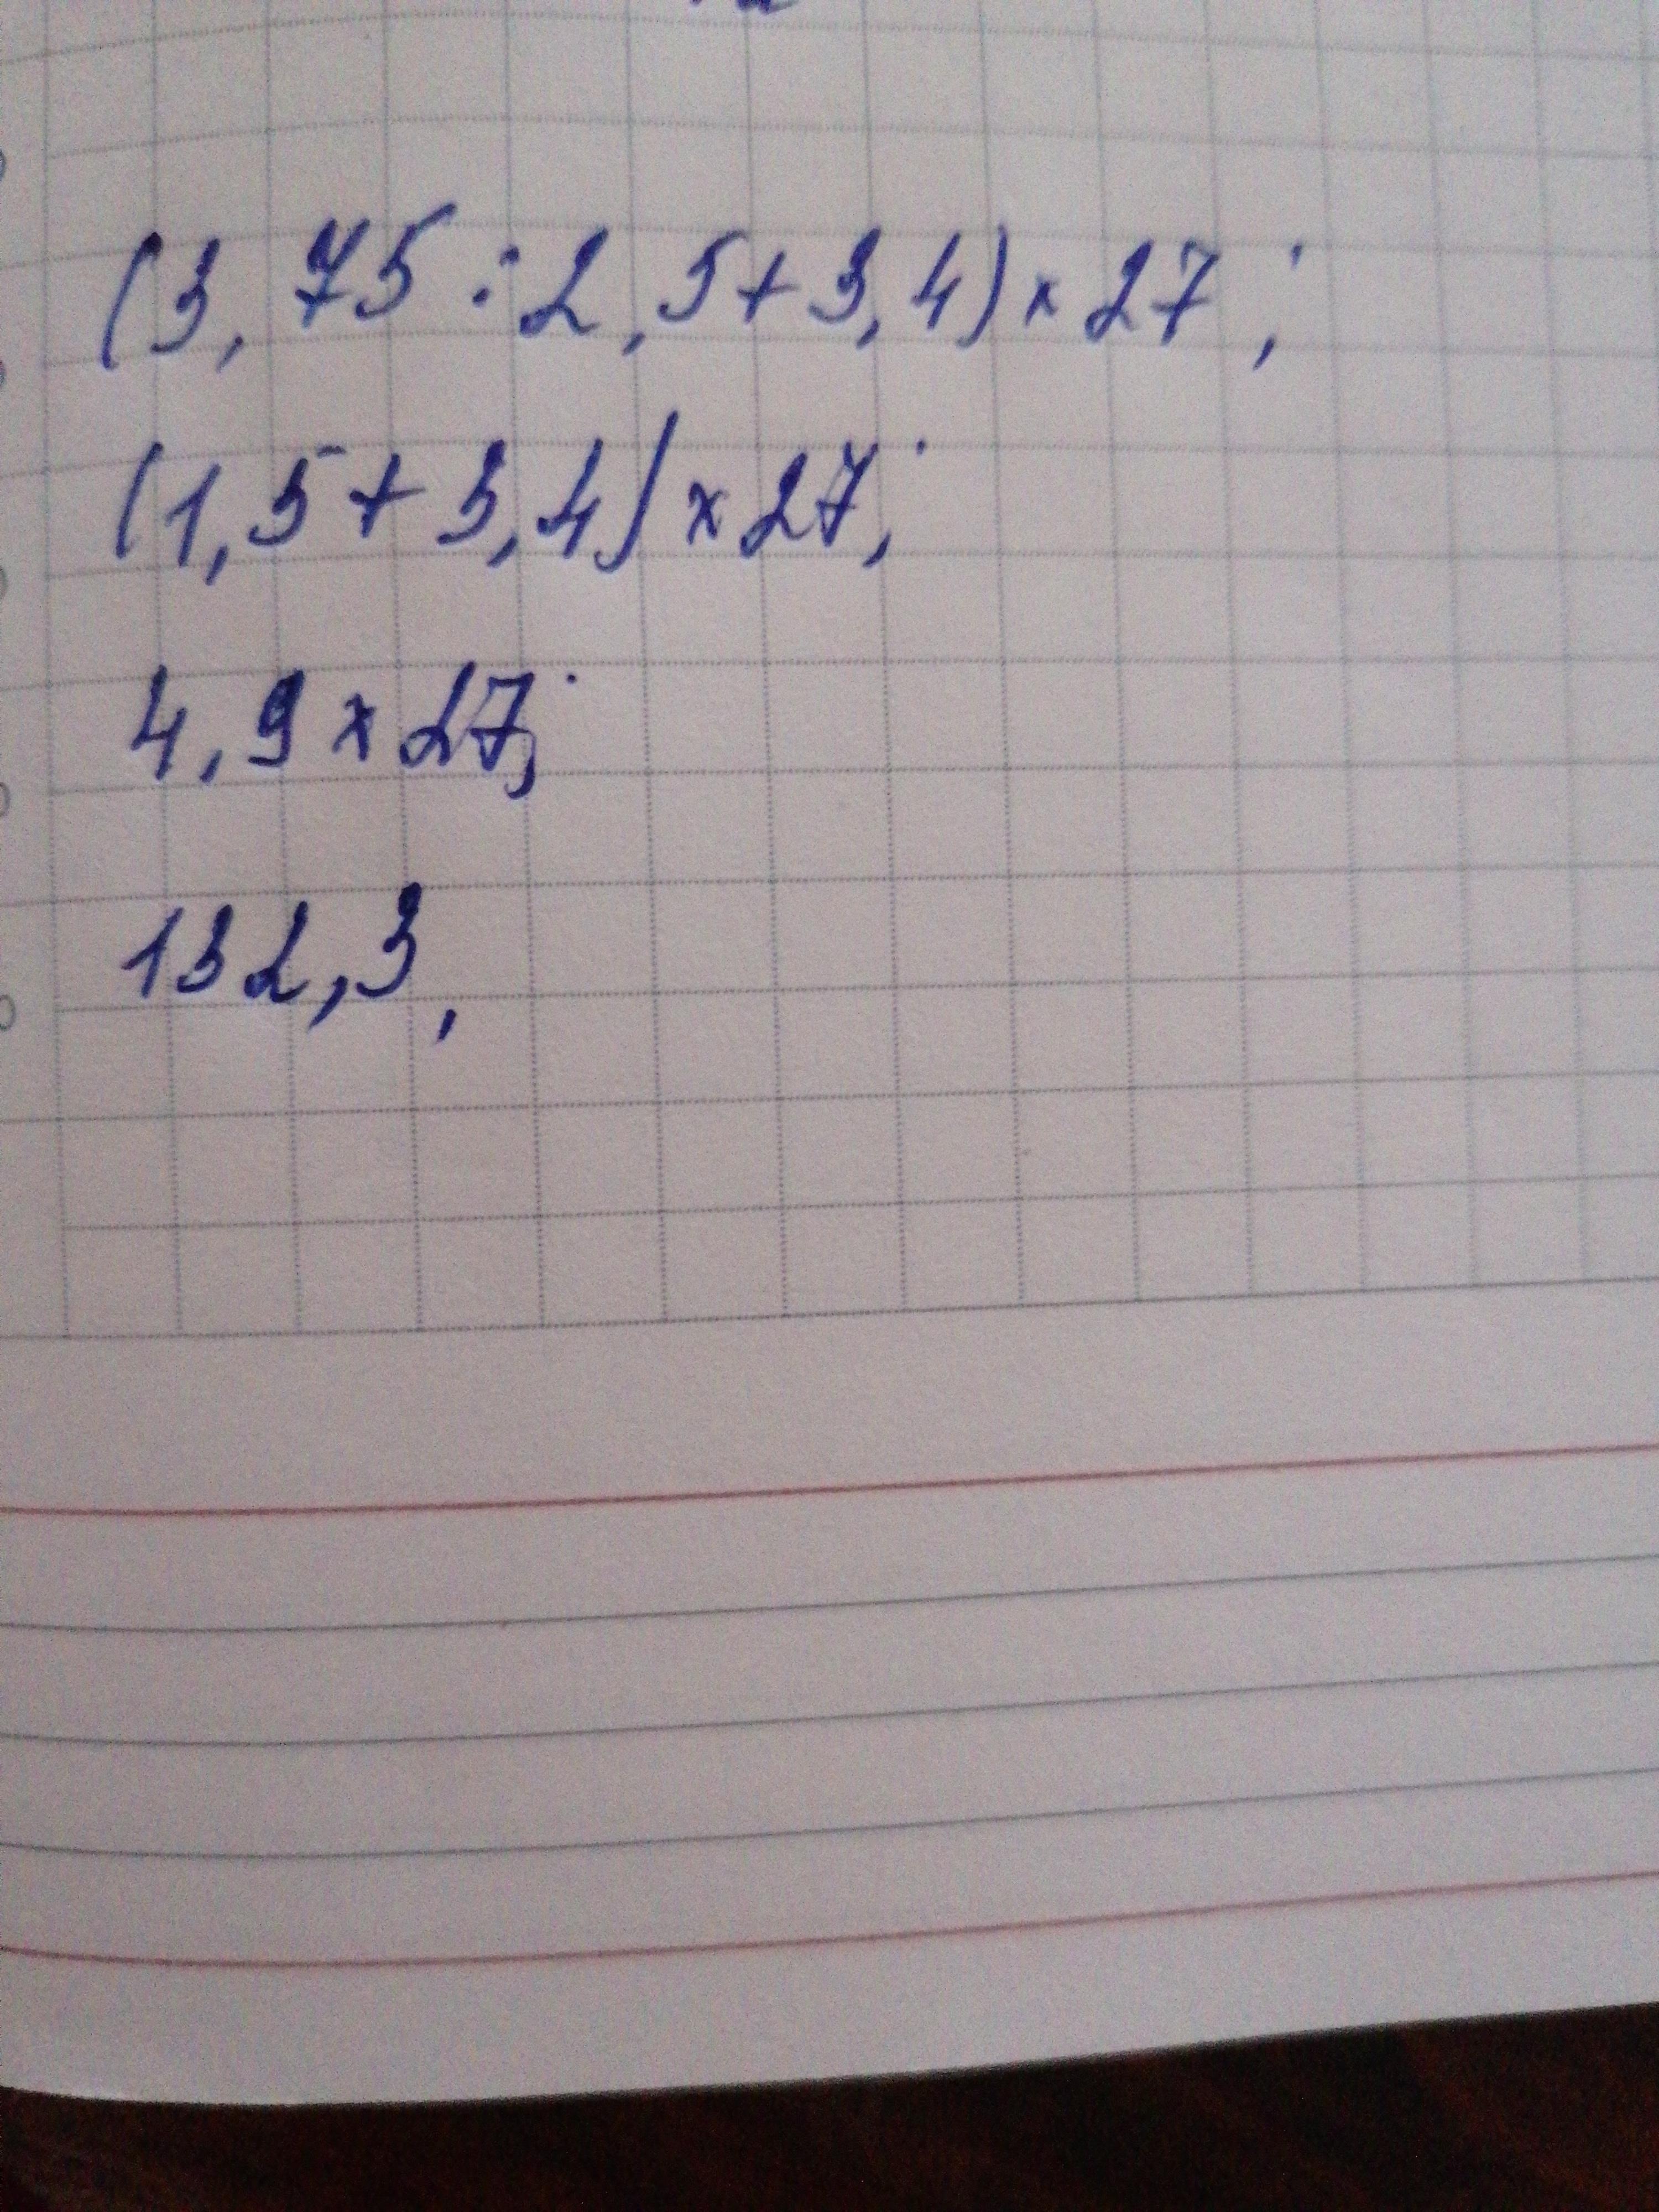 (3,75:2,5+3,4)×27;
(1,5+3,4)×27;
4,9×27;
132,3,